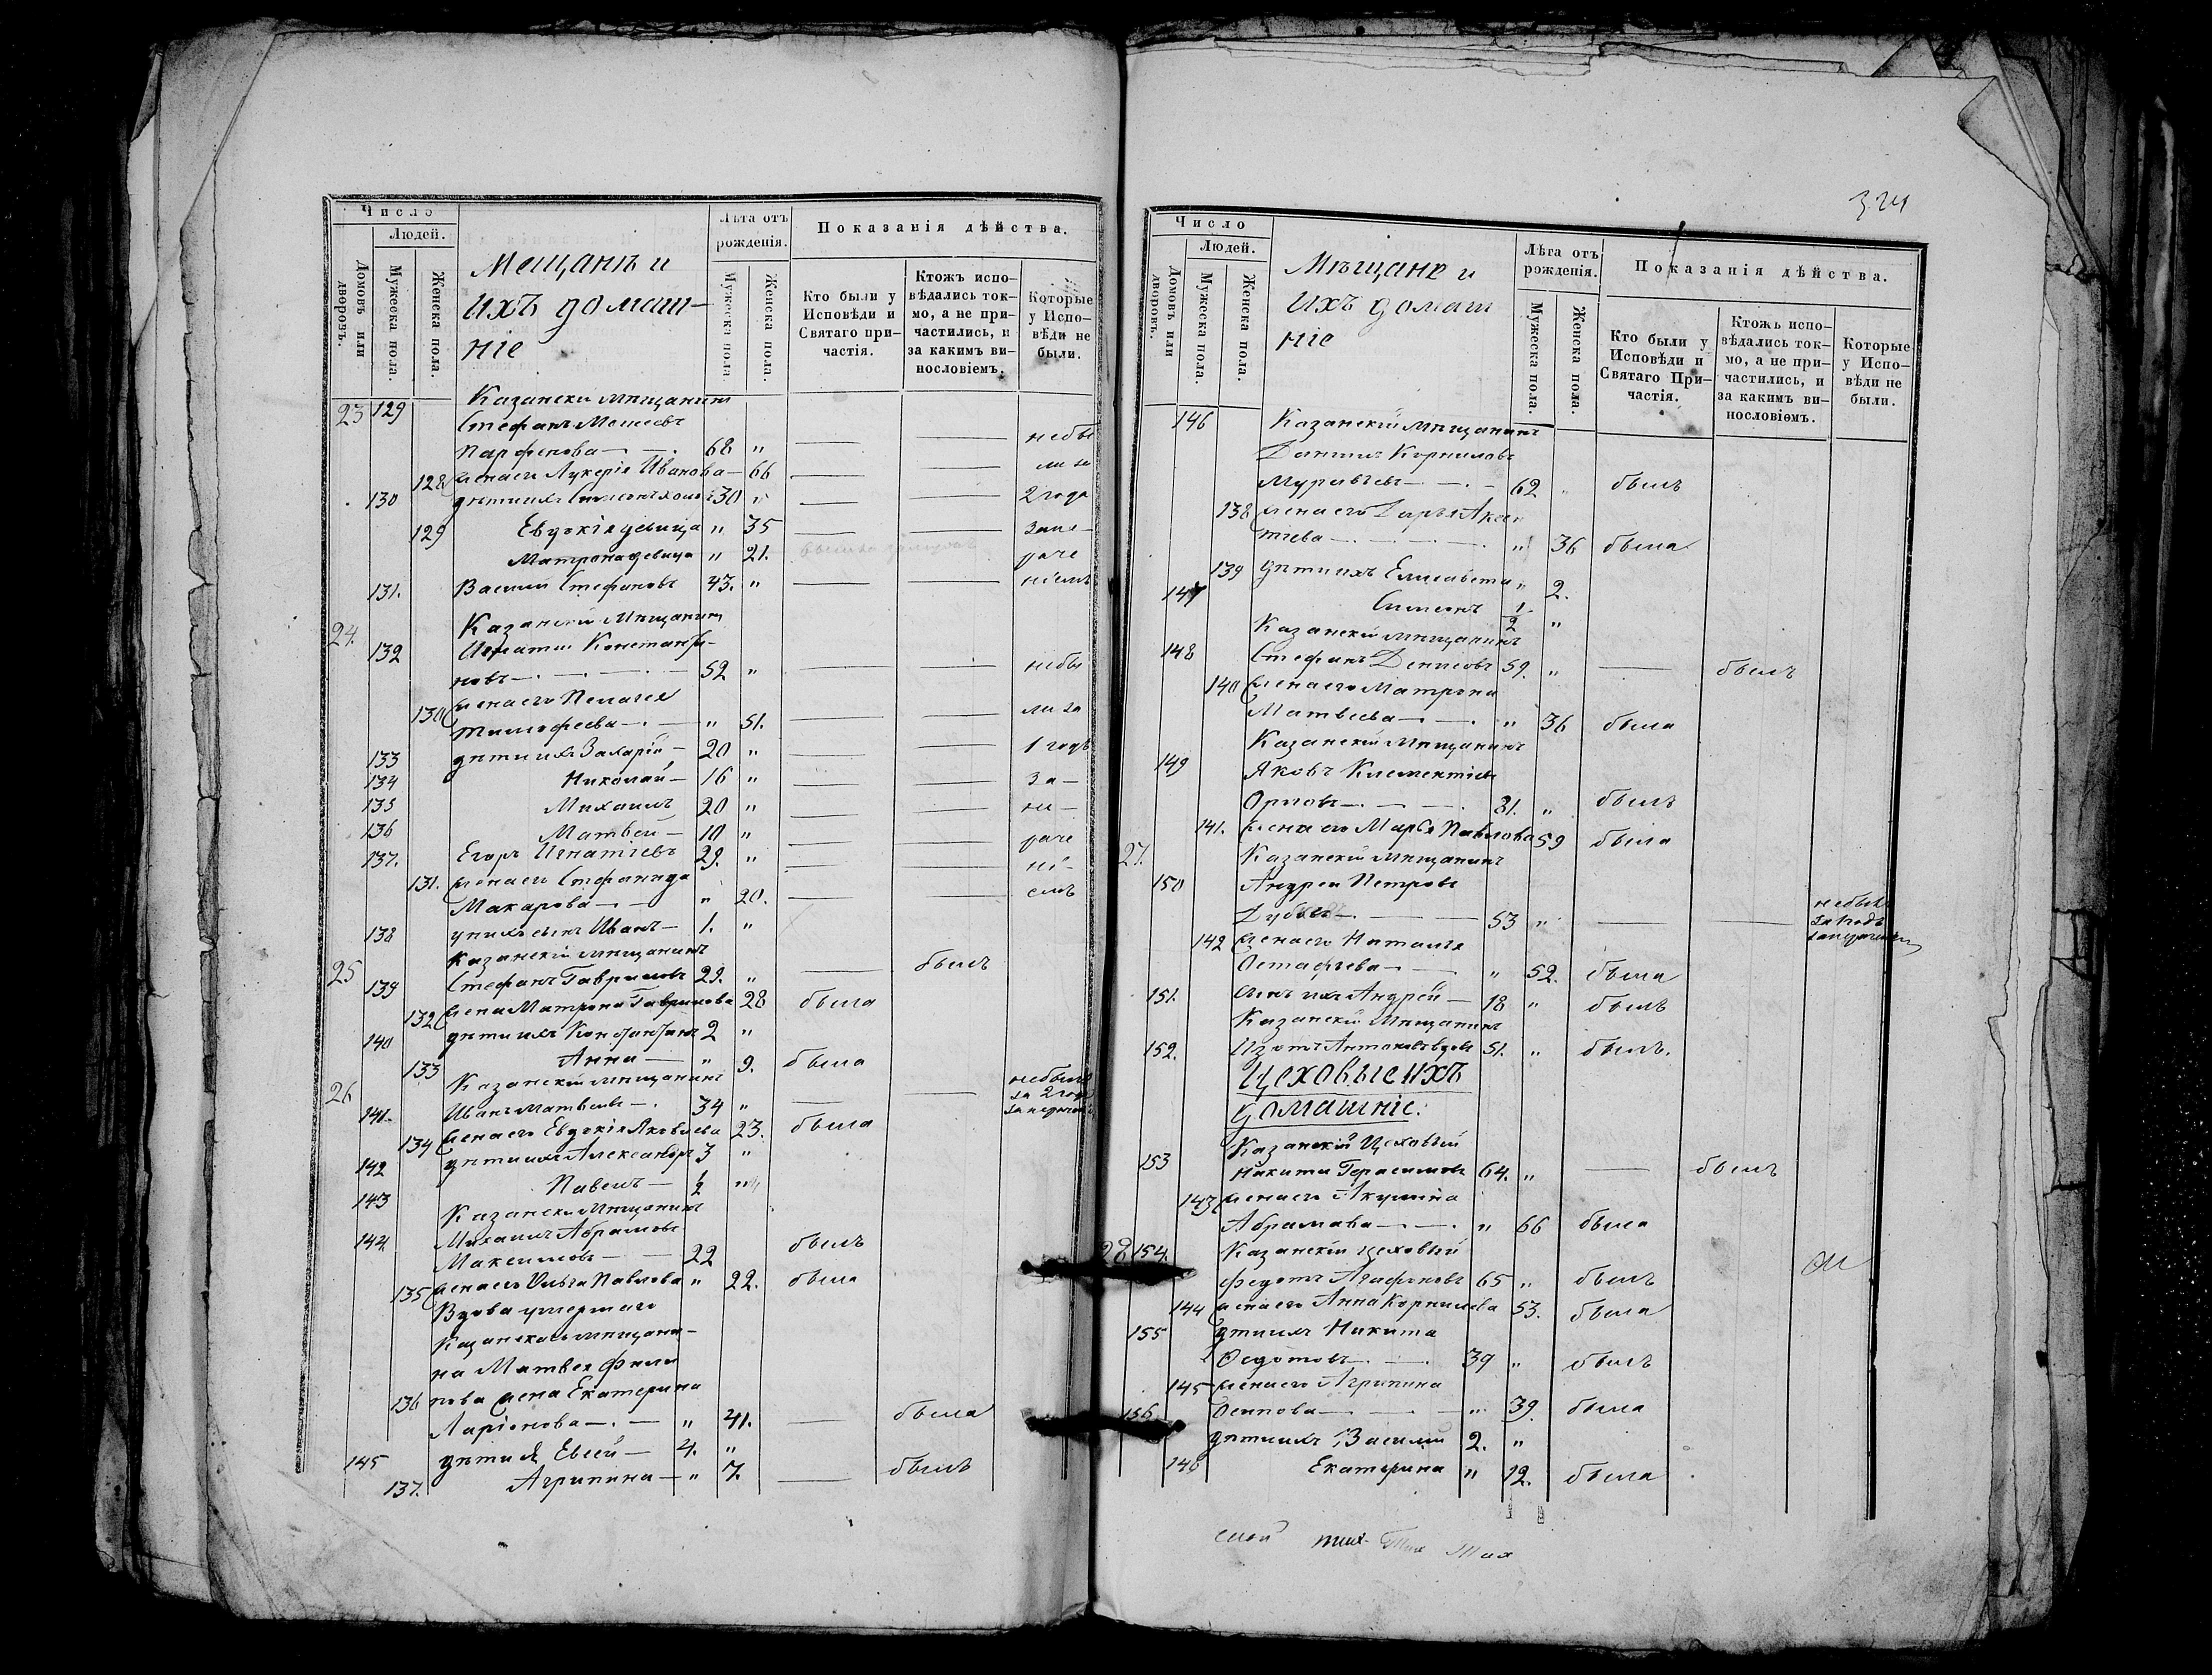 Число
Людей.
Домовъ или дворовъ.
Мужеска пола.
Женска пола.
Мещанъ и
ихъ домаш-
ніе
Лѣта отъ рожденія.
Мужеска пола.
Женска пола.
Показанія дѣйства.
Кто были у Исповѣди и Святаго причастія.
Ктожъ исповѣдались токмо, а не причастились, и за какимъ винословіемъ.
Которые у Исповѣди не были.
23 129 Казански мѣщанинъ
Стефанъ Моисеевъ
Парфенова 68 " небы
128 жена его Лукерія Иванова 66 ли за
130 дѣти ихъ 30 " 2 года
129 Евдокія девица " 35 за не-
Матрона девица " 21. даче
131. Василий Стефановъ 43. " ніемъ
24. Казанскій Мѣщанинъ
132 Игнатий Константи-
новъ 52 " небы
130 жена его Пелагея
Тимофеева " 51. ли за
133 дѣти ихъ Захарій 20 " 1 годъ
134 Николай 16 " за-
135 Михаилъ 20 " не-
136 Матвей 10 " даче
137. Егоръ Игнатіевъ 29. " ні-
131. жена его Стефанида емъ
Макарова " 20.
138 у нихъ сынъ Иванъ 1. "
25 Казанскій мѣщанинъ
139 Стефанъ Гавриловъ 29. " былъ
132 жена Матрона Гаврилова 28 была
140 дѣти ихъ Константинъ 2 "
133 Анна " 9. была
26 Казанскій мѣщанинъ небылъ
141. Иванъ Матвеевъ 34 " за 2 года
134 жена его Евдокія Яковлева 23. была
142 дѣти ихъ Александръ 3 "
143 Павелъ 1/2 "
Казански Мѣщанинъ
144 Михаилъ Абрамовъ
Максимовъ 22 былъ
135 жена его Ольга Павлова " 22. была
Вдова умершаго
Казанскаго мѣщани-
на Матвея Фили
136 пова жена Екатерина
Ларіонова " 41. была
145 дѣти ея Евсей 4. "
137. Агрипина " 7. былъ
324
Число
Людей.
Домовъ или дворовъ.
Мужеска пола.
Женска пола.
Мѣщане и
ихъ домаш
ніе
Лѣта отъ рожденія.
Мужеска пола.
Женска пола.
Показанія дѣйства.
Кто были у Исповѣди и Святаго Причастія.
Ктожъ исповѣдались токмо, а не причастились, и за какимъ винословіемъ.
Которые у Исповѣди не были.
146 Казанскій мѣщанинъ
Даниилъ Корниловъ
Муравьевъ 62 " былъ
138 жена его Дарья Аксен
тіева " 36 была
139 дѣти ихъ Елисавета " 2.
147 Симеонъ 1/2 "
Казанскій мѣщанинъ
148 Стефанъ Денисовъ 59. " былъ
140 жена его Матрона
Матвеева " 36 была
Казанскій мѣщанинъ
149 Яковъ Клементіевъ
Орловъ 31. " былъ
141. жена его Марья Павлова 59 была
27. Казанскій мѣщанинъ
150 Андрей Петровъ небылъ
53 " за годъ
142 жена его Наталья
Остафьева " 52. была
151. сынъ ихъ Андрей 18 " былъ
Казанскій Мѣщанинъ
152. Изотъ 51. " былъ.
Цеховые ихъ
домашніе.
Казанскій Цеховый
153 Никита Герасимовъ 64. " былъ
143 жена его Акулина
Абрамова " 66 была
28 154. Казанскій цеховый
Федотъ Агафоновъ 65 " былъ
144 жена его Анна Корнилева 53. была
155 дѣти ихъ Никита
Федотовъ 39 " былъ
145 жена его Агрипина
Осипова " 39. была
156 дѣти ихъ Василій 2. "
146 Екатерина " 12. была